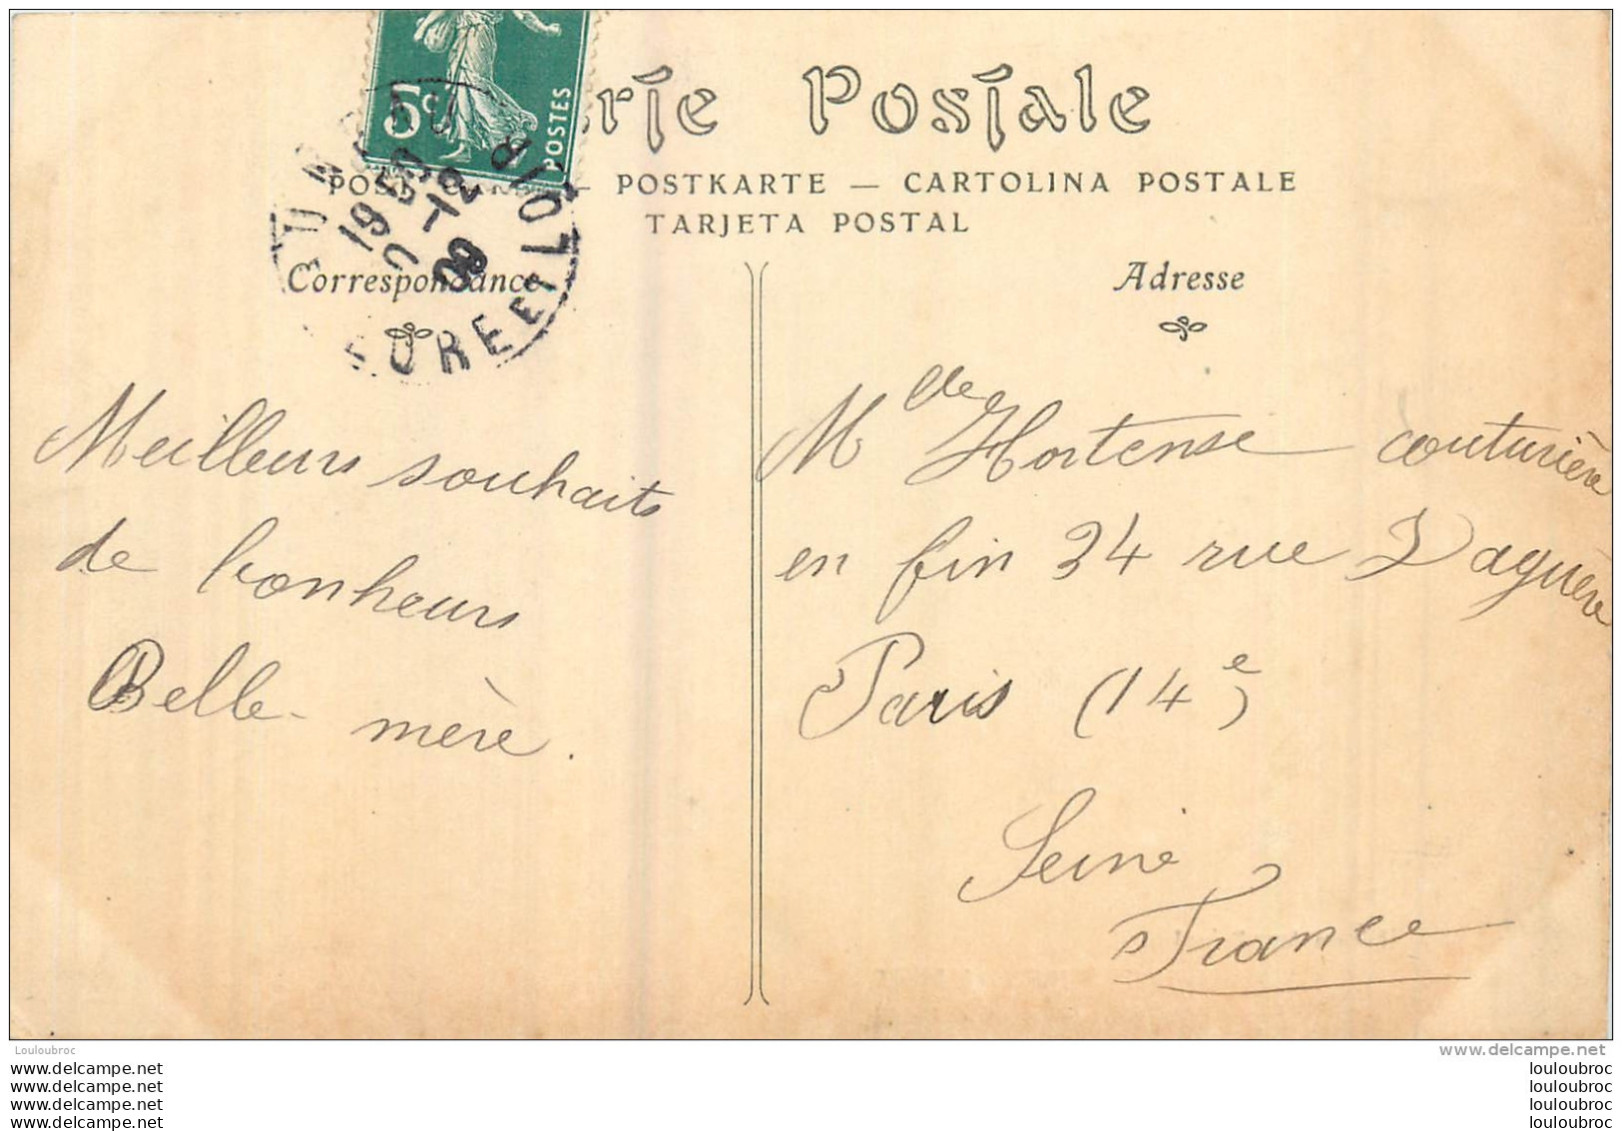 5c
POSTES
Postale
POSTKARTE — CARTOLINA POSTALE
TARJETA POSTAL
Correspondance
Adresse
EURE ET LOIR
09
Meilleurs souhaits
de bonheurs
Belle-mère.
Mlle Hortense couturière
en fin 34 rue Daguère
Paris (14e)
Seine
France
Louloubroc
www.delcampe.net
www.delcampe.net
www.delcampe.net
www.delcampe.net
www.delcampe.net
louloubroc
louloubroc
louloubroc
louloubroc